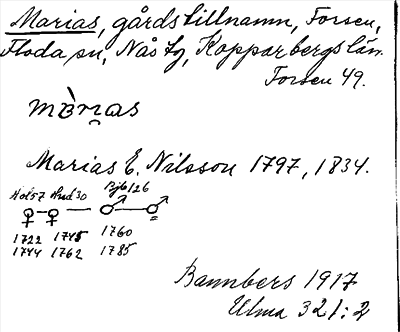 Marias, gårdstillnamn, Forsen,
Floda sn, Nås tg, Kopparbergs län.
Forsen 49.
màrias
Marias E. Nilsson 1797, 1834.
Hol 57 Rud 30 Bjö 126
♀ – ♀ — ♂ — ♂
1722 1745 1760
1744 1762 1785
Bannbers 1917
Ulma 321:2